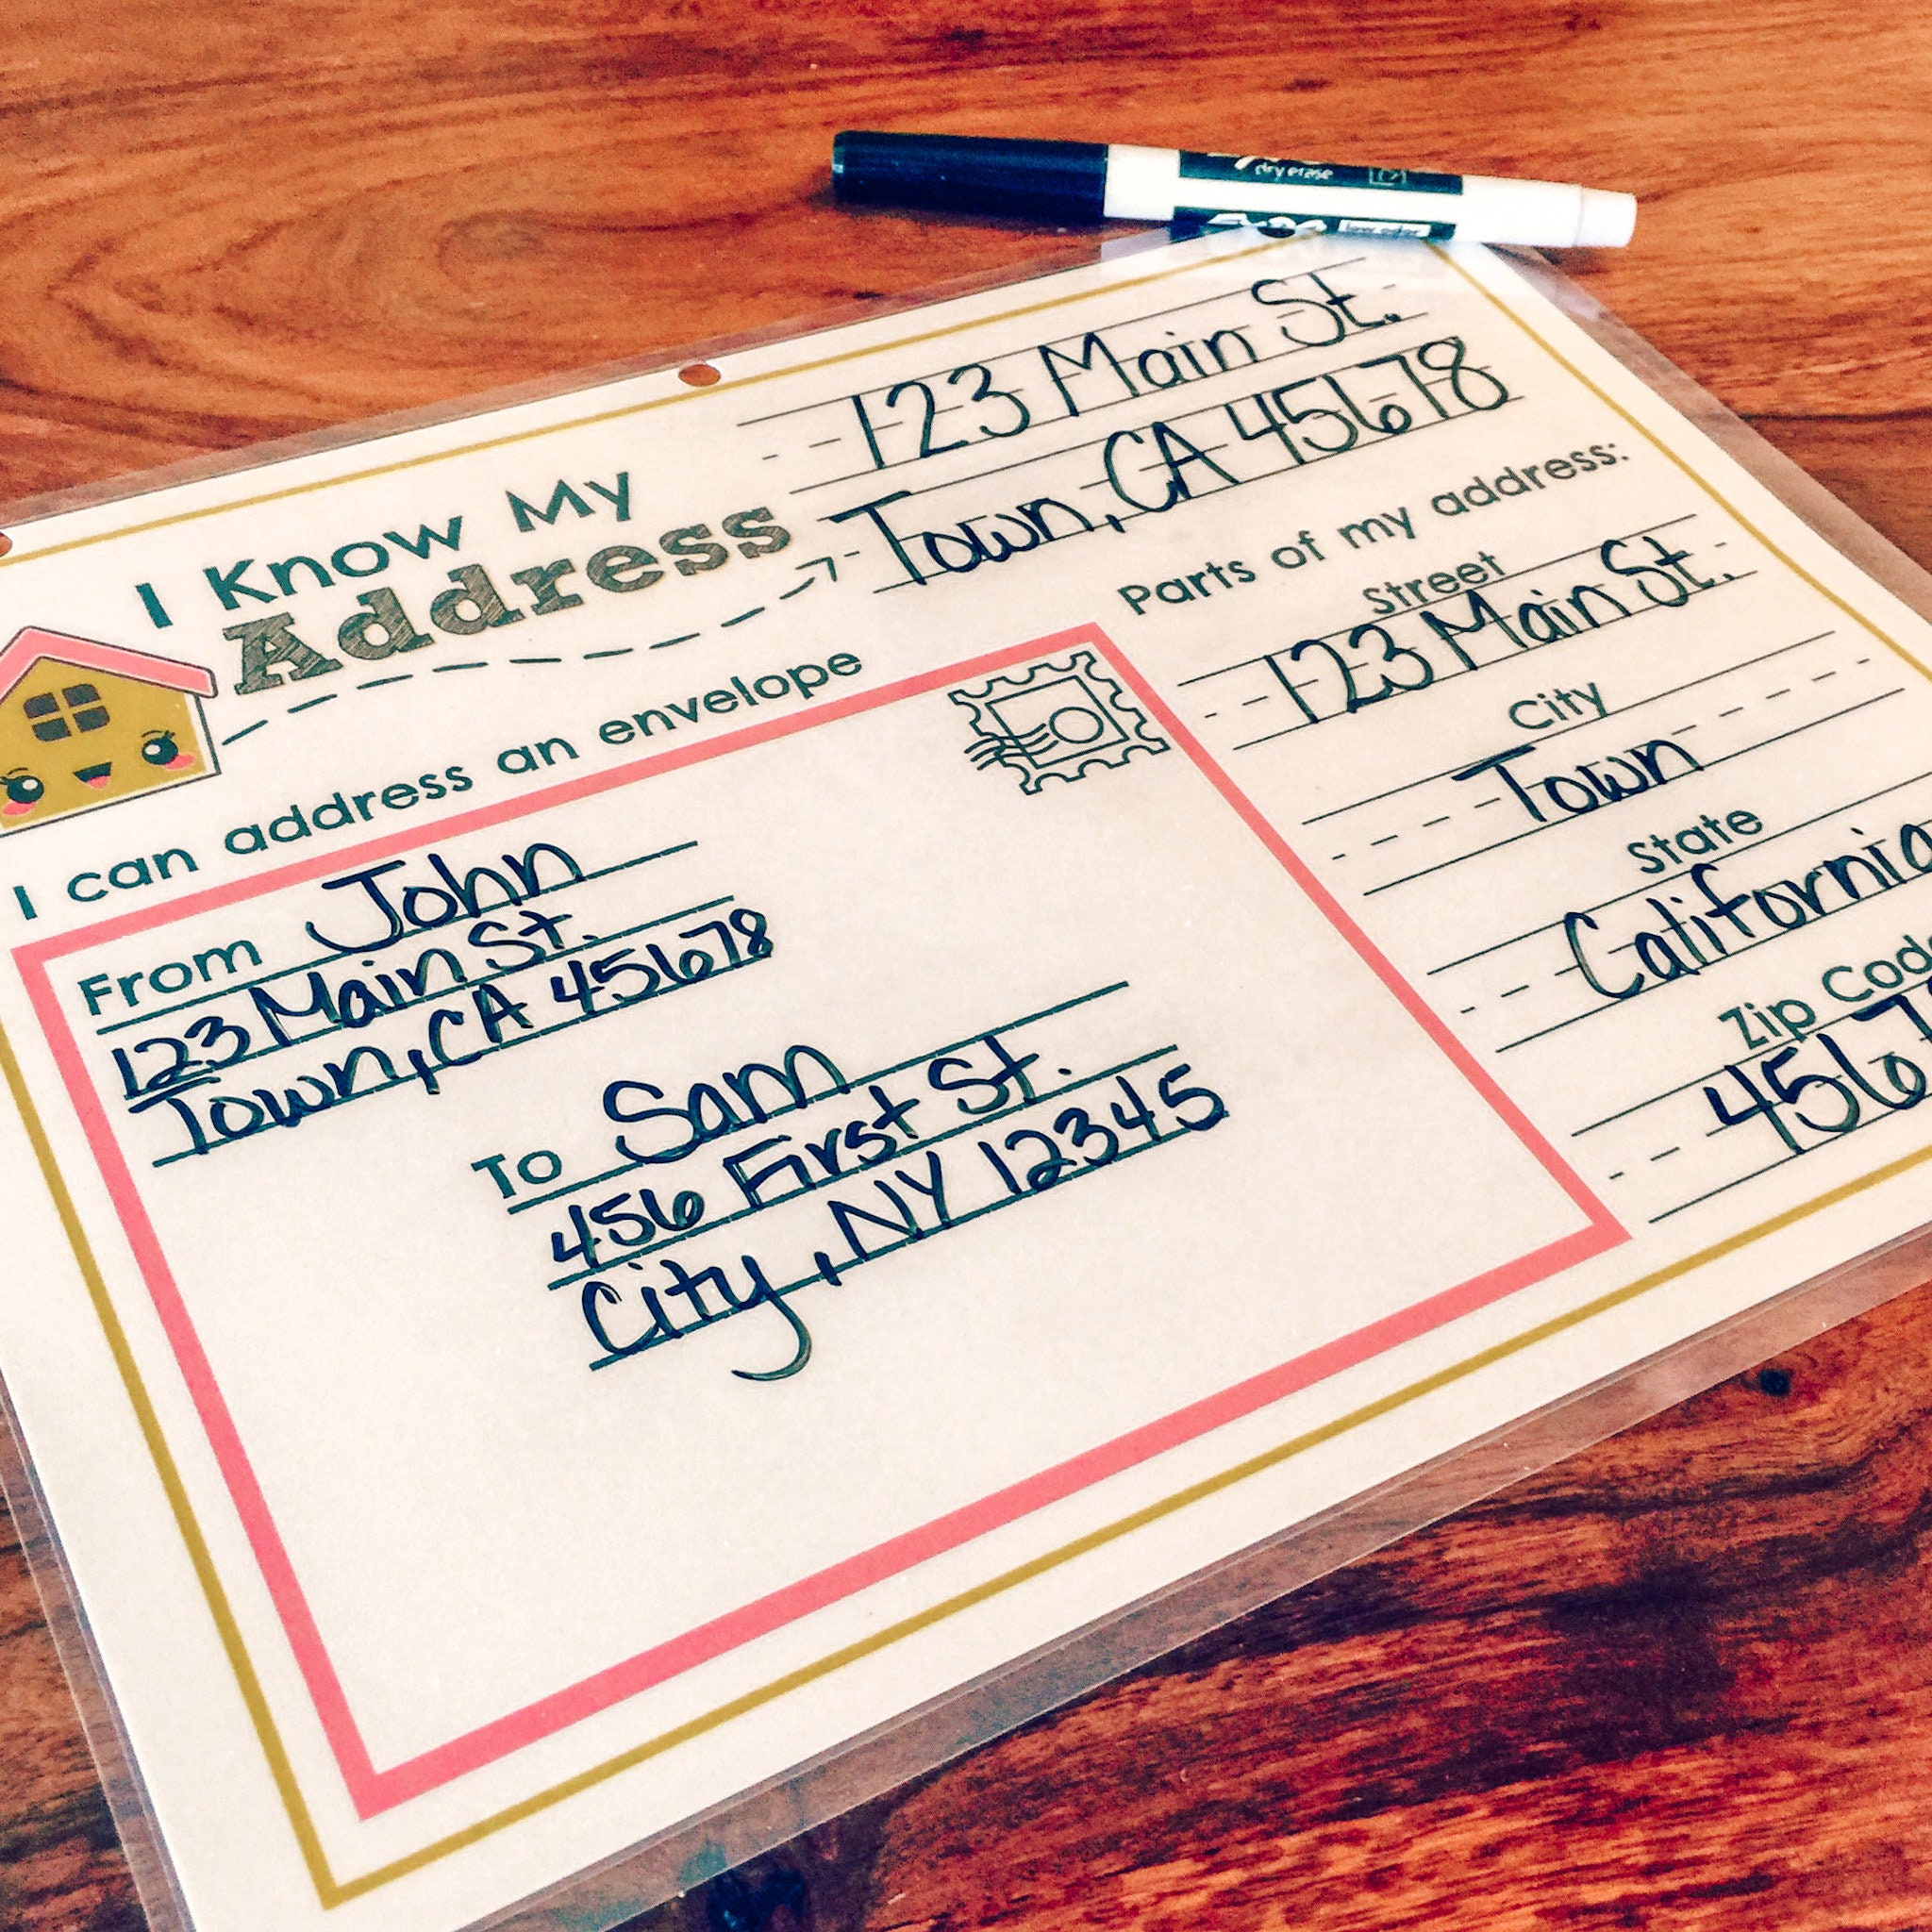 dry erase
low odor
123 Main St.
Town, CA 45678
I Know My
Address
Parts of my address:
Street
123 Main St.
City
Town
State
California
Zip Code
4567
I can address an envelope
From John
123 Main St.
Town, CA 45678
To Sam
456 First St.
City, NY 12345